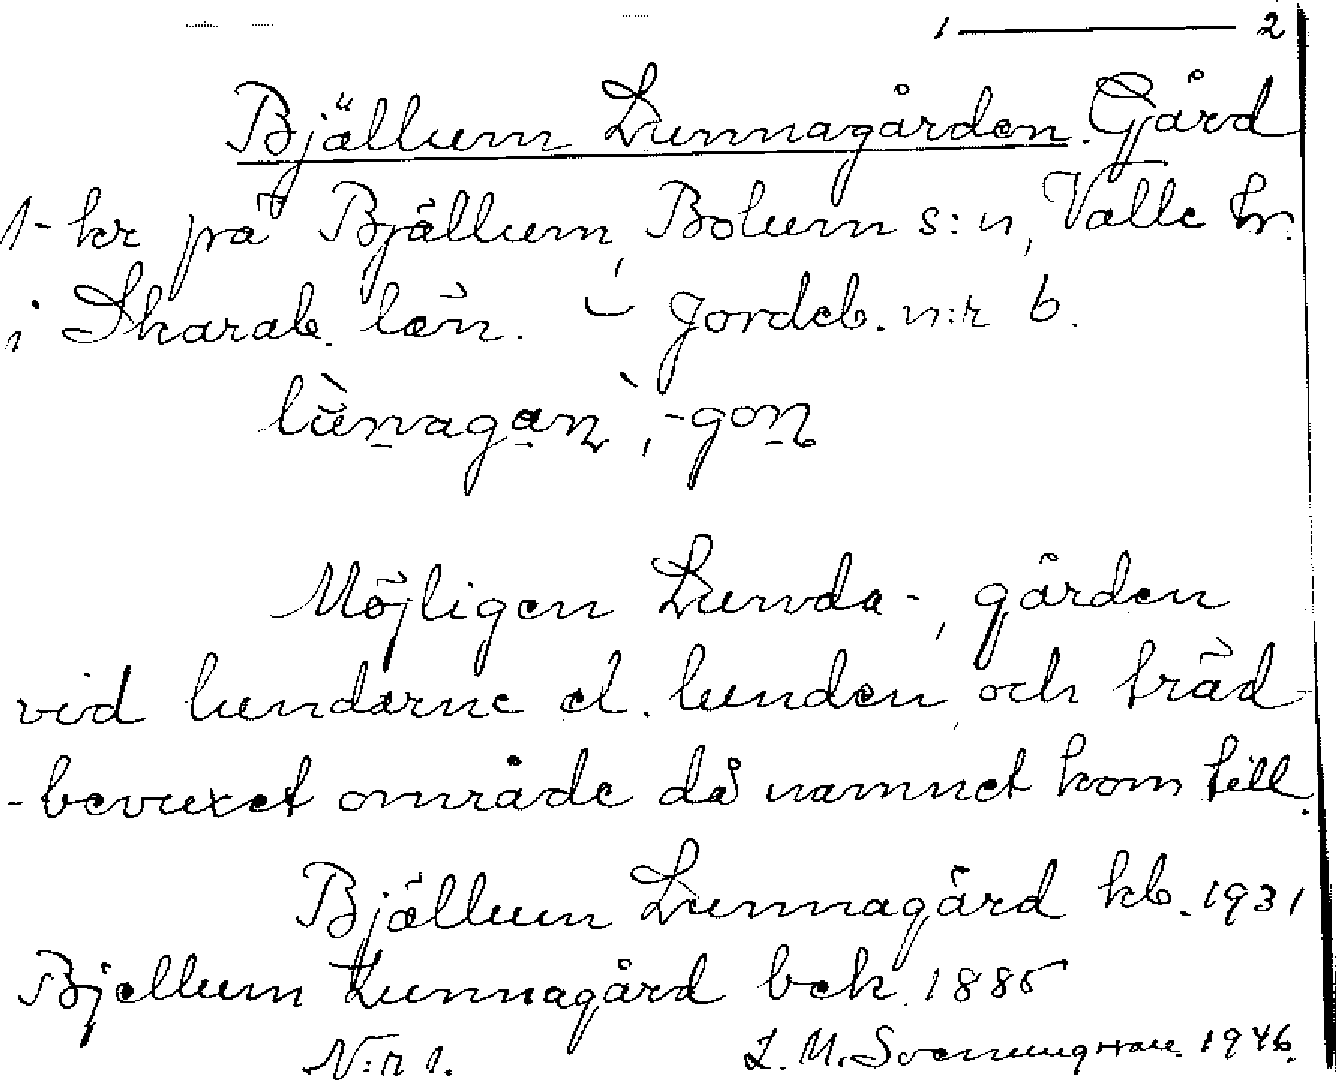 1 ——— 2
Bjällum Lunnagården. Gård
1-kr på Bjällum, Bolum s:n, Valle hr.
i Skarab. län. – Jordeb. n:r 6.
Möjligen Lunda-, gården
vid lundarne el. lunden och träd
-bevuxet område då namnet kom till.
Bjällum Lunnagård kb. 1931
Bjellum Lunnagård bek. 1885
N:r 1. L. M. Svenungsson 1946.